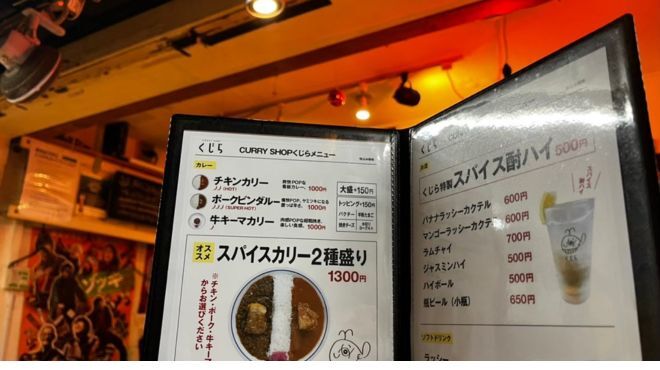 くじら
CURRY SHOPくじらメニュー
カレー
チキンカリー
(HOT)
1000円
大盛+150円
ポークビンダルー
(SUPER HOT)
1000円
トッピング+150円
牛キーマカリー
1000円
オススメ
スパイスカリー2種盛り
1300円
※チキン・ポーク・牛キーマ
からお選びください
くじら
CURRY
くじら特製スパイス酎ハイ 600円
スパイス酎ハイ
バナナラッシーカクテル 600円
マンゴーラッシーカクテル 600円
ラムチャイ 700円
ジャスミンハイ 500円
ハイボール 500円
瓶ビール (小瓶) 650円
ソフトドリンク
ラッシー